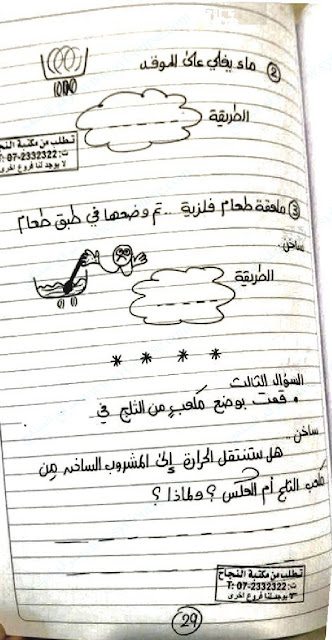 ② ماء يغلي على الموقد
الطريقة
تطلب من مكتبة النجاح
ت: 07-2332322
لا يوجد لنا فروع اخرى
③ ملعقة طعام فلزية .. تم وضعها في طبق طعام
ساخن.
الطريقة
* * * *
السؤال الثالث
• قمت بوضع مكعب من الثلج في
ساخن ..
هل ستنتقل الحرارة إلى المشروب الساخن من
مكعب الثلج أم العكس؟ ولماذا؟
تطلب من مكتبة النجاح
T: 07-2332322 :ت
لا يوجد لنا فروع اخرى
29